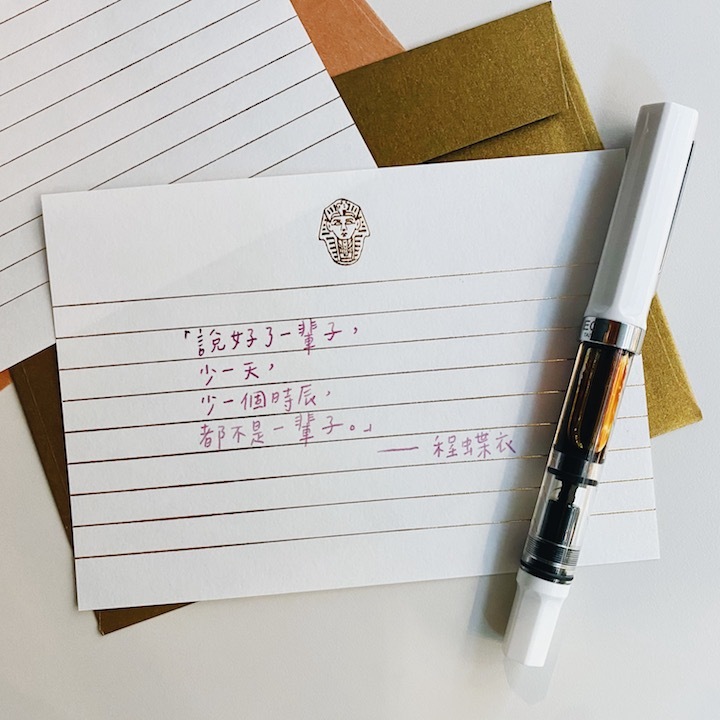 「說好了一輩子，
少一天，
少一個時辰，
都不是一輩子。」
—— 程蝶衣